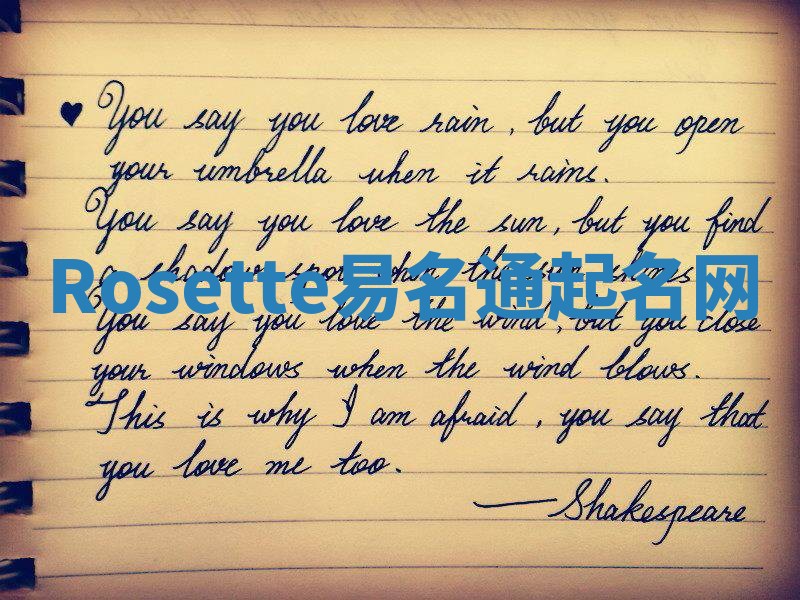 ♥ You say you love rain, but you open
your umbrella when it rains.
You say you love the sun, but you find
a shadow spot when the sun shines
Rosette易名通起名网
You say you love the wind, but you close
your windows when the wind blows.
This is why I am afraid, you say that
you love me too.
— Shakespeare